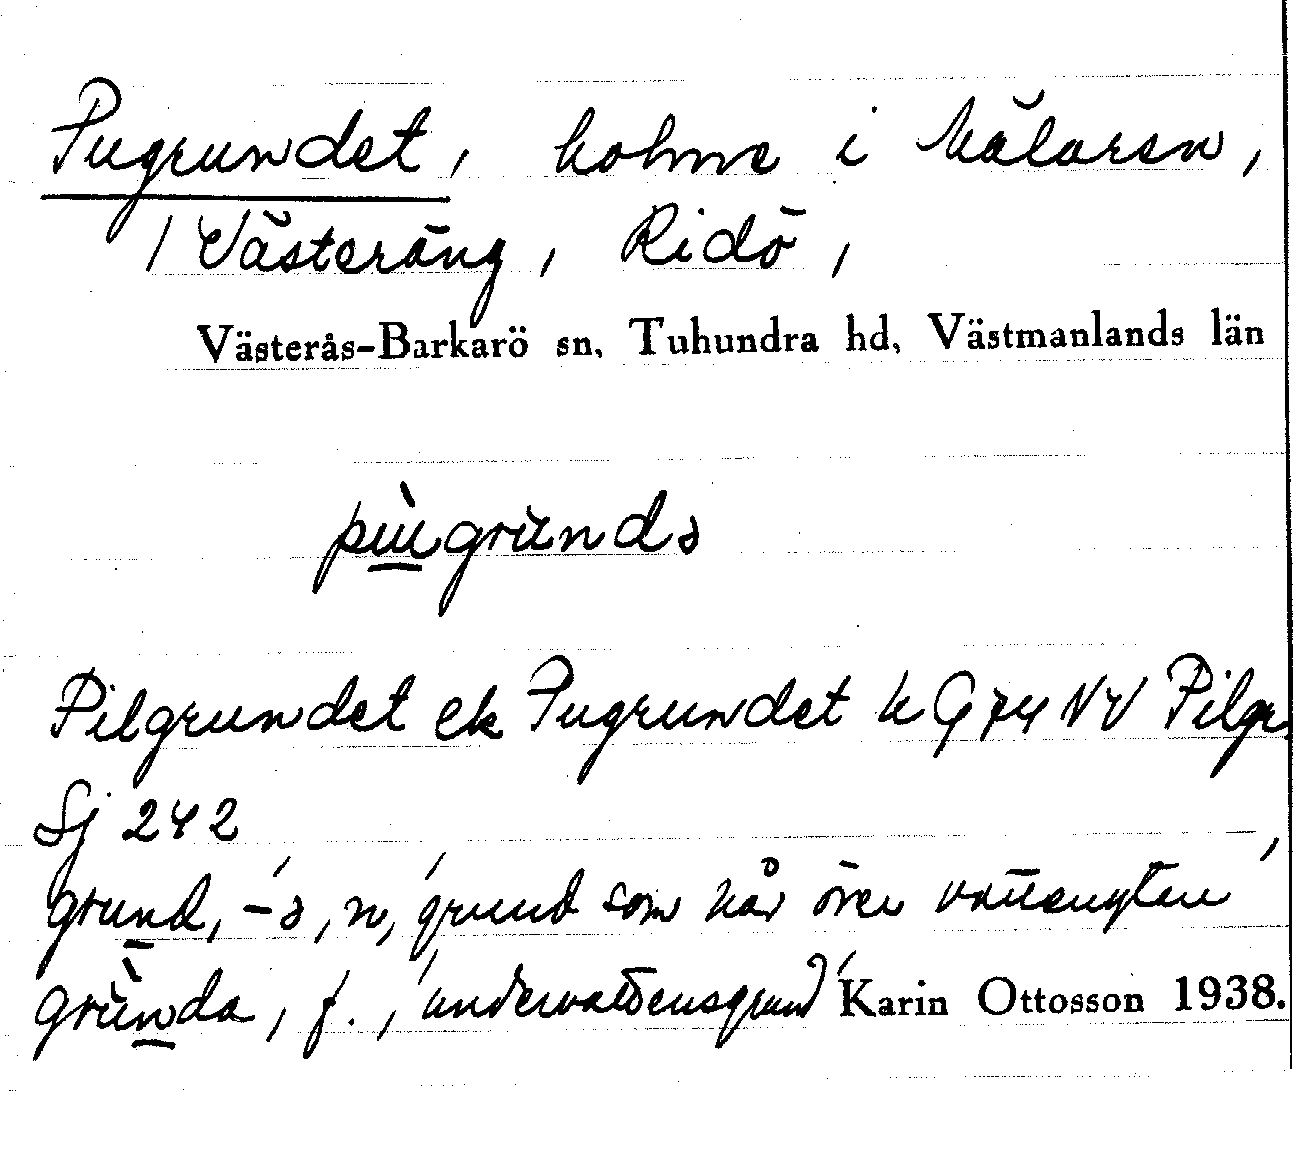 Pugrundet, holme i Mälaren,
/ Västeräng, Ridö,
Västerås-Barkarö sn, Tuhundra hd, Västmanlands län
pùugrunds
Pilgrundet ek Pugrundet k G 74 NV Pilgr
Sj 242
grund, -ə, n, 'grund som når över vattenytan'
grùnda, f., 'undervattensgrund' Karin Ottosson 1938.